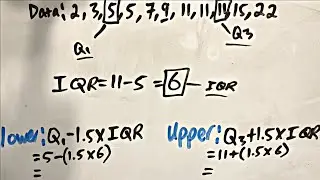 Data: 2, 3, 5, 5, 7, 9, 11, 11, 11, 15, 22
Q₁ Q₃
IQR = 11 - 5 = 6 — IQR
lower: Q₁ - 1.5 X IQR
= 5 - (1.5 X 6)
=
Upper: Q₃ + 1.5 X IQR
= 11 + (1.5 X 6)
=